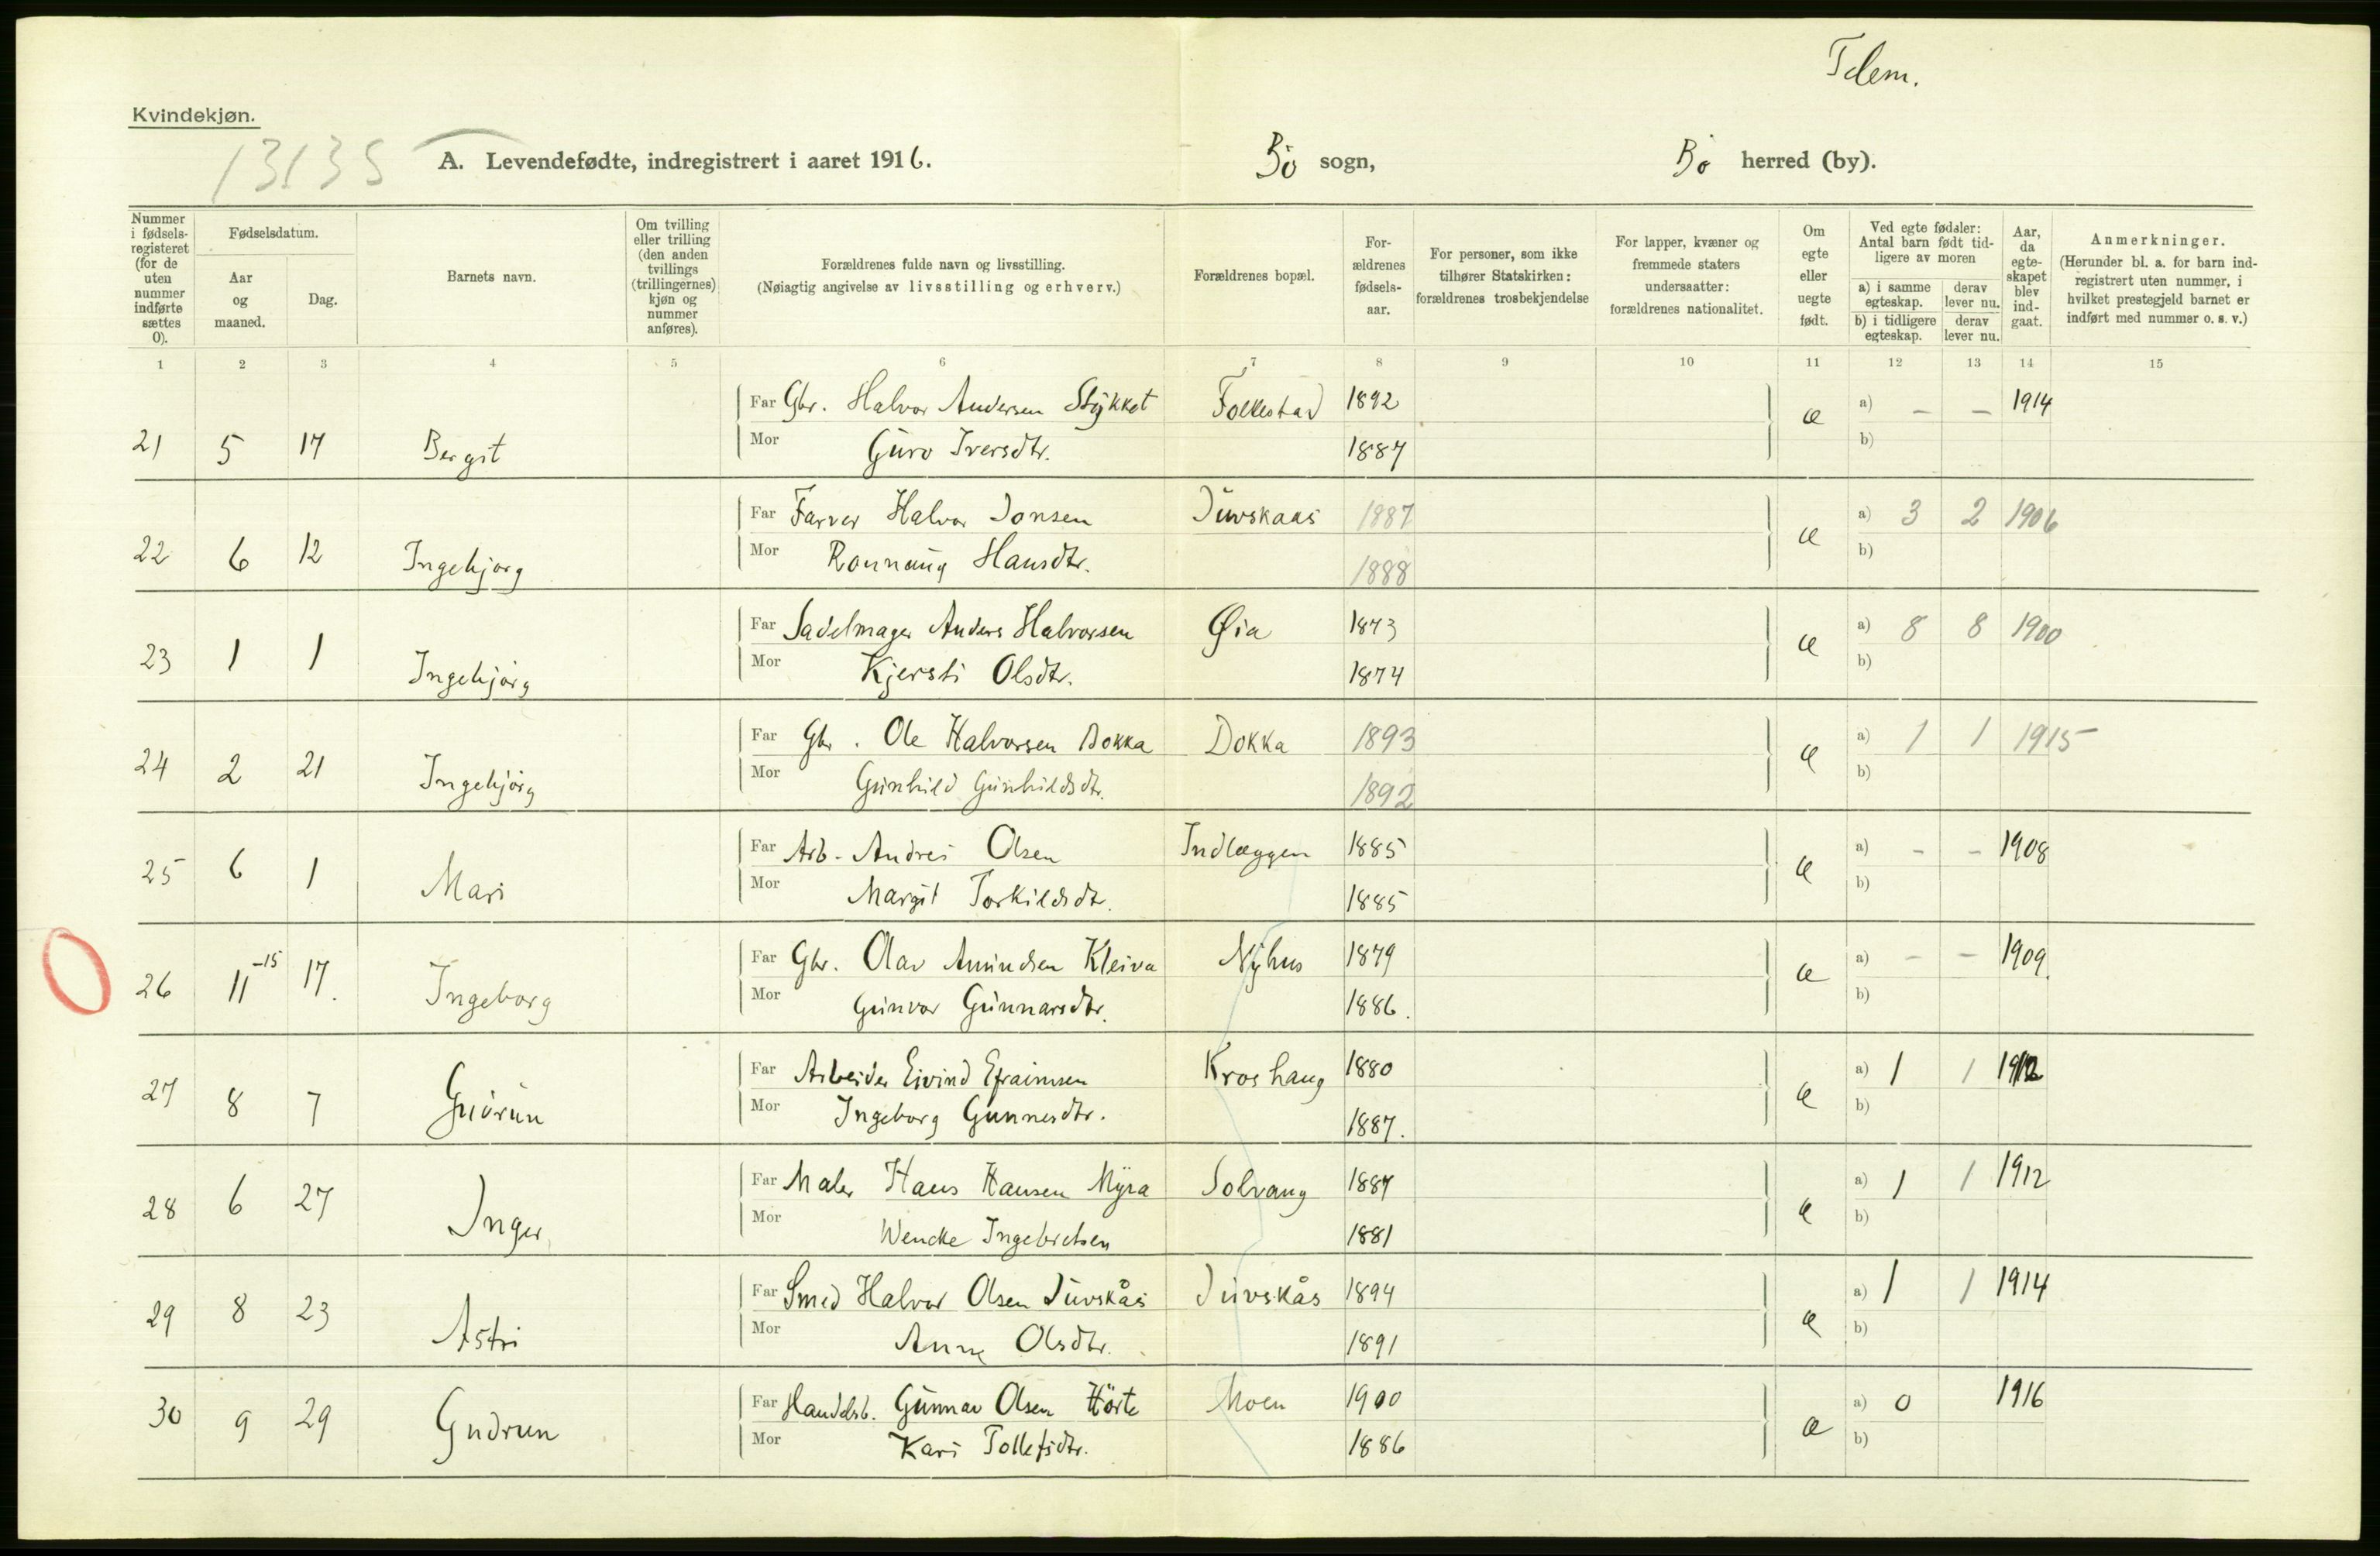 Telem.
Kvindekjøn.
13135
A. Levendefødte, indregistrert i aaret 1916.
Bö sogn,
Bø herred (by).
Nummer i fødsels-registeret (for de uten nummer indførte sættes 0).
Fødselsdatum.
Aar og maaned.
Dag.
Barnets navn.
Om tvilling eller trilling (den anden tvillings (trillingernes) kjøn og nummer anføres).
Forældrenes fulde navn og livsstilling.
(Nøiagtig angivelse av livsstilling og erhverv.)
Forældrenes bopæl.
For-ældrenes fødsels-aar.
For personer, som ikke tilhører Statskirken: forældrenes trosbekjendelse
For lapper, kvæner og fremmede staters undersaatter: forældrenes nationalitet.
Om egte eller uegte født.
Ved egte fødsler: Antal barn født tid-ligere av moren
a) i samme egteskap.
derav lever nu.
b) i tidligere egteskap.
derav lever nu.
Aar, da egte-skapet blev ind-gaat.
Anmerkninger.
(Herunder bl. a. for barn ind-registrert uten nummer, i hvilket prestegjeld barnet er indført med nummer o. s. v.)
1 2 3 4 5 6 7 8 9 10 11 12 13 14 15
Far Gbr. Halvor Andersen Stykket Folkestad 1892 a) - - 1914
21 5 17 Bergit Mor Guro Iversdtr. 1887 e b)
Far Farver Halvor Jonsen Juvskaas 1887 a) 3 2 1906
22 6 12 Ingebjørg Mor Rønnaug Hansdtr. 1888 e b)
Far Sadelmager Anders Halvorsen Øia 1873 a) 8 8 1900
23 1 1 Ingebjörg Mor Kjersti Olsdtr. 1874 e b)
Far Gbr. Ole Halvorsen Dokka Dokka 1893 a) 1 1 1915
24 2 21 Ingebjörg Mor Gunhild Gunhildsdtr. 1892 e b)
Far Arb. Andres Olsen Indlæggen 1885 a) - - 1908
25 6 1 Mari Mor Margit Torkildsdtr. 1885 e b)
Far Gbr. Olav Amundsen Kleiva Nyhus 1879 a) - - 1909.
26 11-15 17. Ingeborg Mor Gunvor Gunnarsdtr. 1886. e b)
Far Arbeider Eivind Efraimsen Kroshaug 1880 a) 1 1 1912
27 8 7 Gudrun Mor Ingeborg Gunnesdtr. 1887. e b)
Far Maler Hans Hansen Myra Solvang 1887 a) 1 1 1912
28 6 27 Inger Mor Wencke Ingebretsen 1881 e b)
Far Smed Halvor Olsen Juvskås Juvskås 1894 a) 1 1 1914
29 8 23 Astri Mor Anne Olsdtr. 1891 e b)
Far Handelsb. Gunnar Olsen Hörte Moen 1900 a) 0 1916
30 9 29 Gudrun Mor Kari Tollefsdtr. 1886 e b)